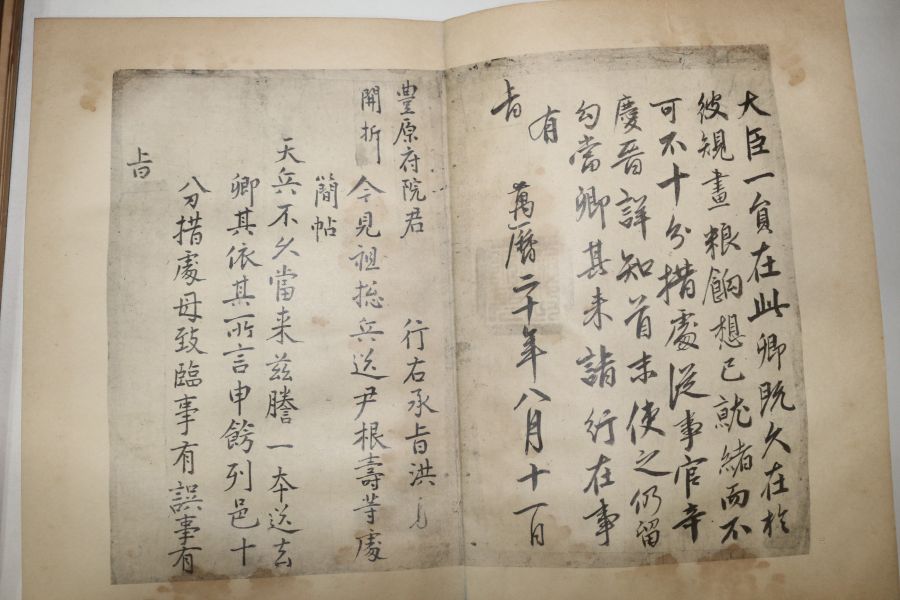 大臣一員在此卿既久在於
彼規畫粮餉想已就緒而不
可不十分措處從事官辛
慶晉詳知首末使之仍留
勾當卿其來詣行在事
有
旨
萬曆二十年八月十一日
豐原府院君 行右承旨洪
開折 今見祖摠兵送尹根壽等處
簡帖
天兵不久當来茲謄一本送去
卿其依其所言申飭列邑十
分措處毋致臨事有誤事有
旨